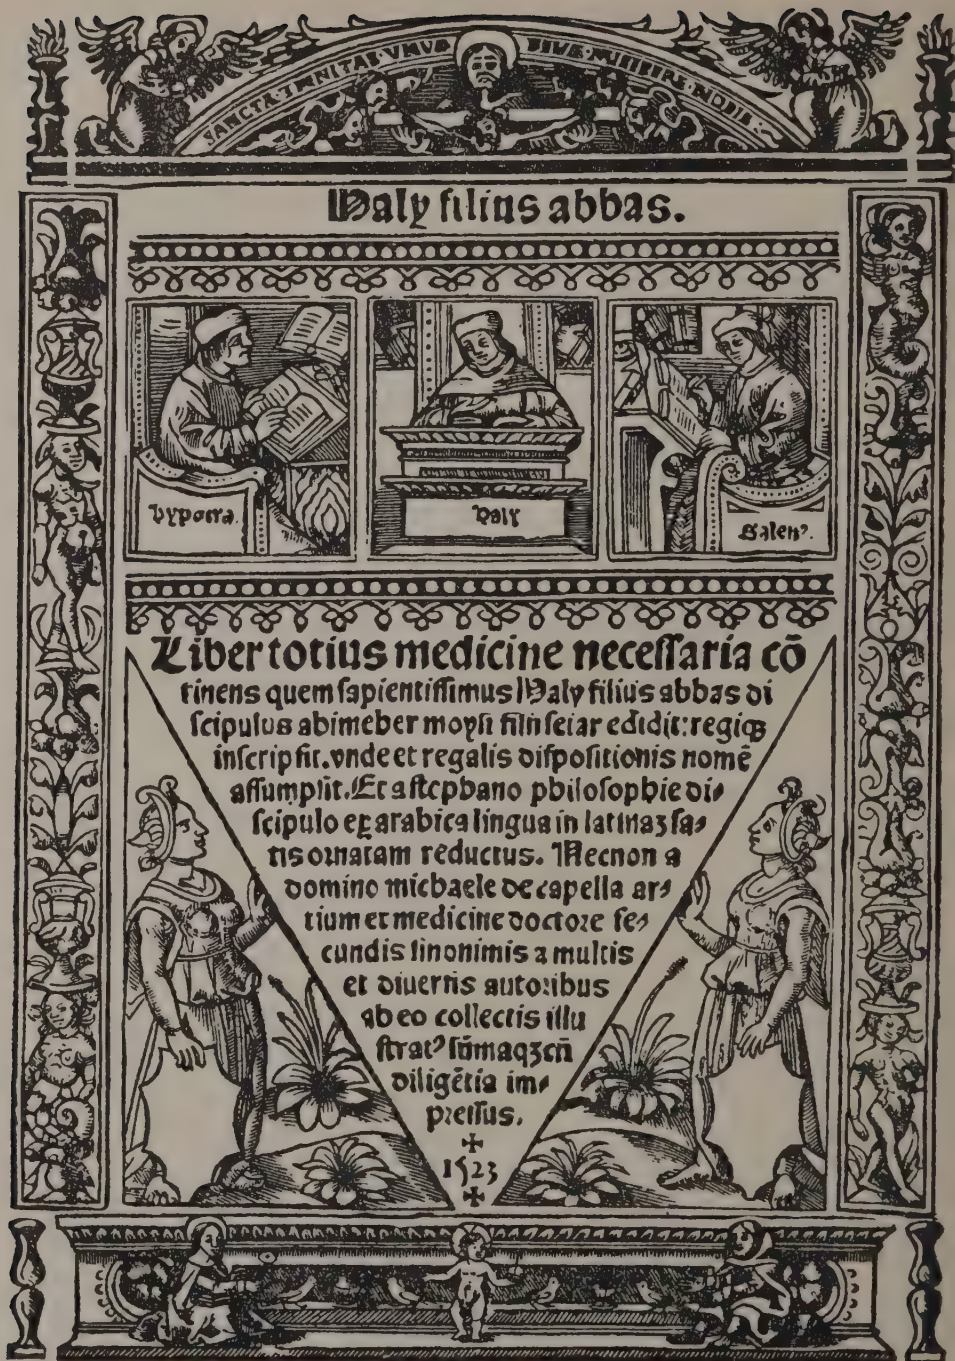 SANCTA·TRNITAS·VNVS· DEVS·MISERERE·NOBIS·
Haly filius abbas.
Hypocra.
Haly
Galenꝰ.
Liber totius medicine necessaria cō
tinens quem sapientissimus Haly filius abbas di
scipulus abimeber moysi filij seiar edidit: regiqꝫ
inscripsit. vnde et regalis dispositionis nomē
assumpsit. Et a stephano philosophie di⸗
scipulo ex arabica lingua in latinaꝫ sa⸗
tis ornatam reductus. Necnon a
domino michaele de capella ar⸗
tium et medicine doctore fe⸗
cundis sinonimis a multis
et diuersis autoribus
ab eo collectis illu
stratꝰ sūmaqꝫ cū
diligētia im⸗
pressus.
✠
1523
✠